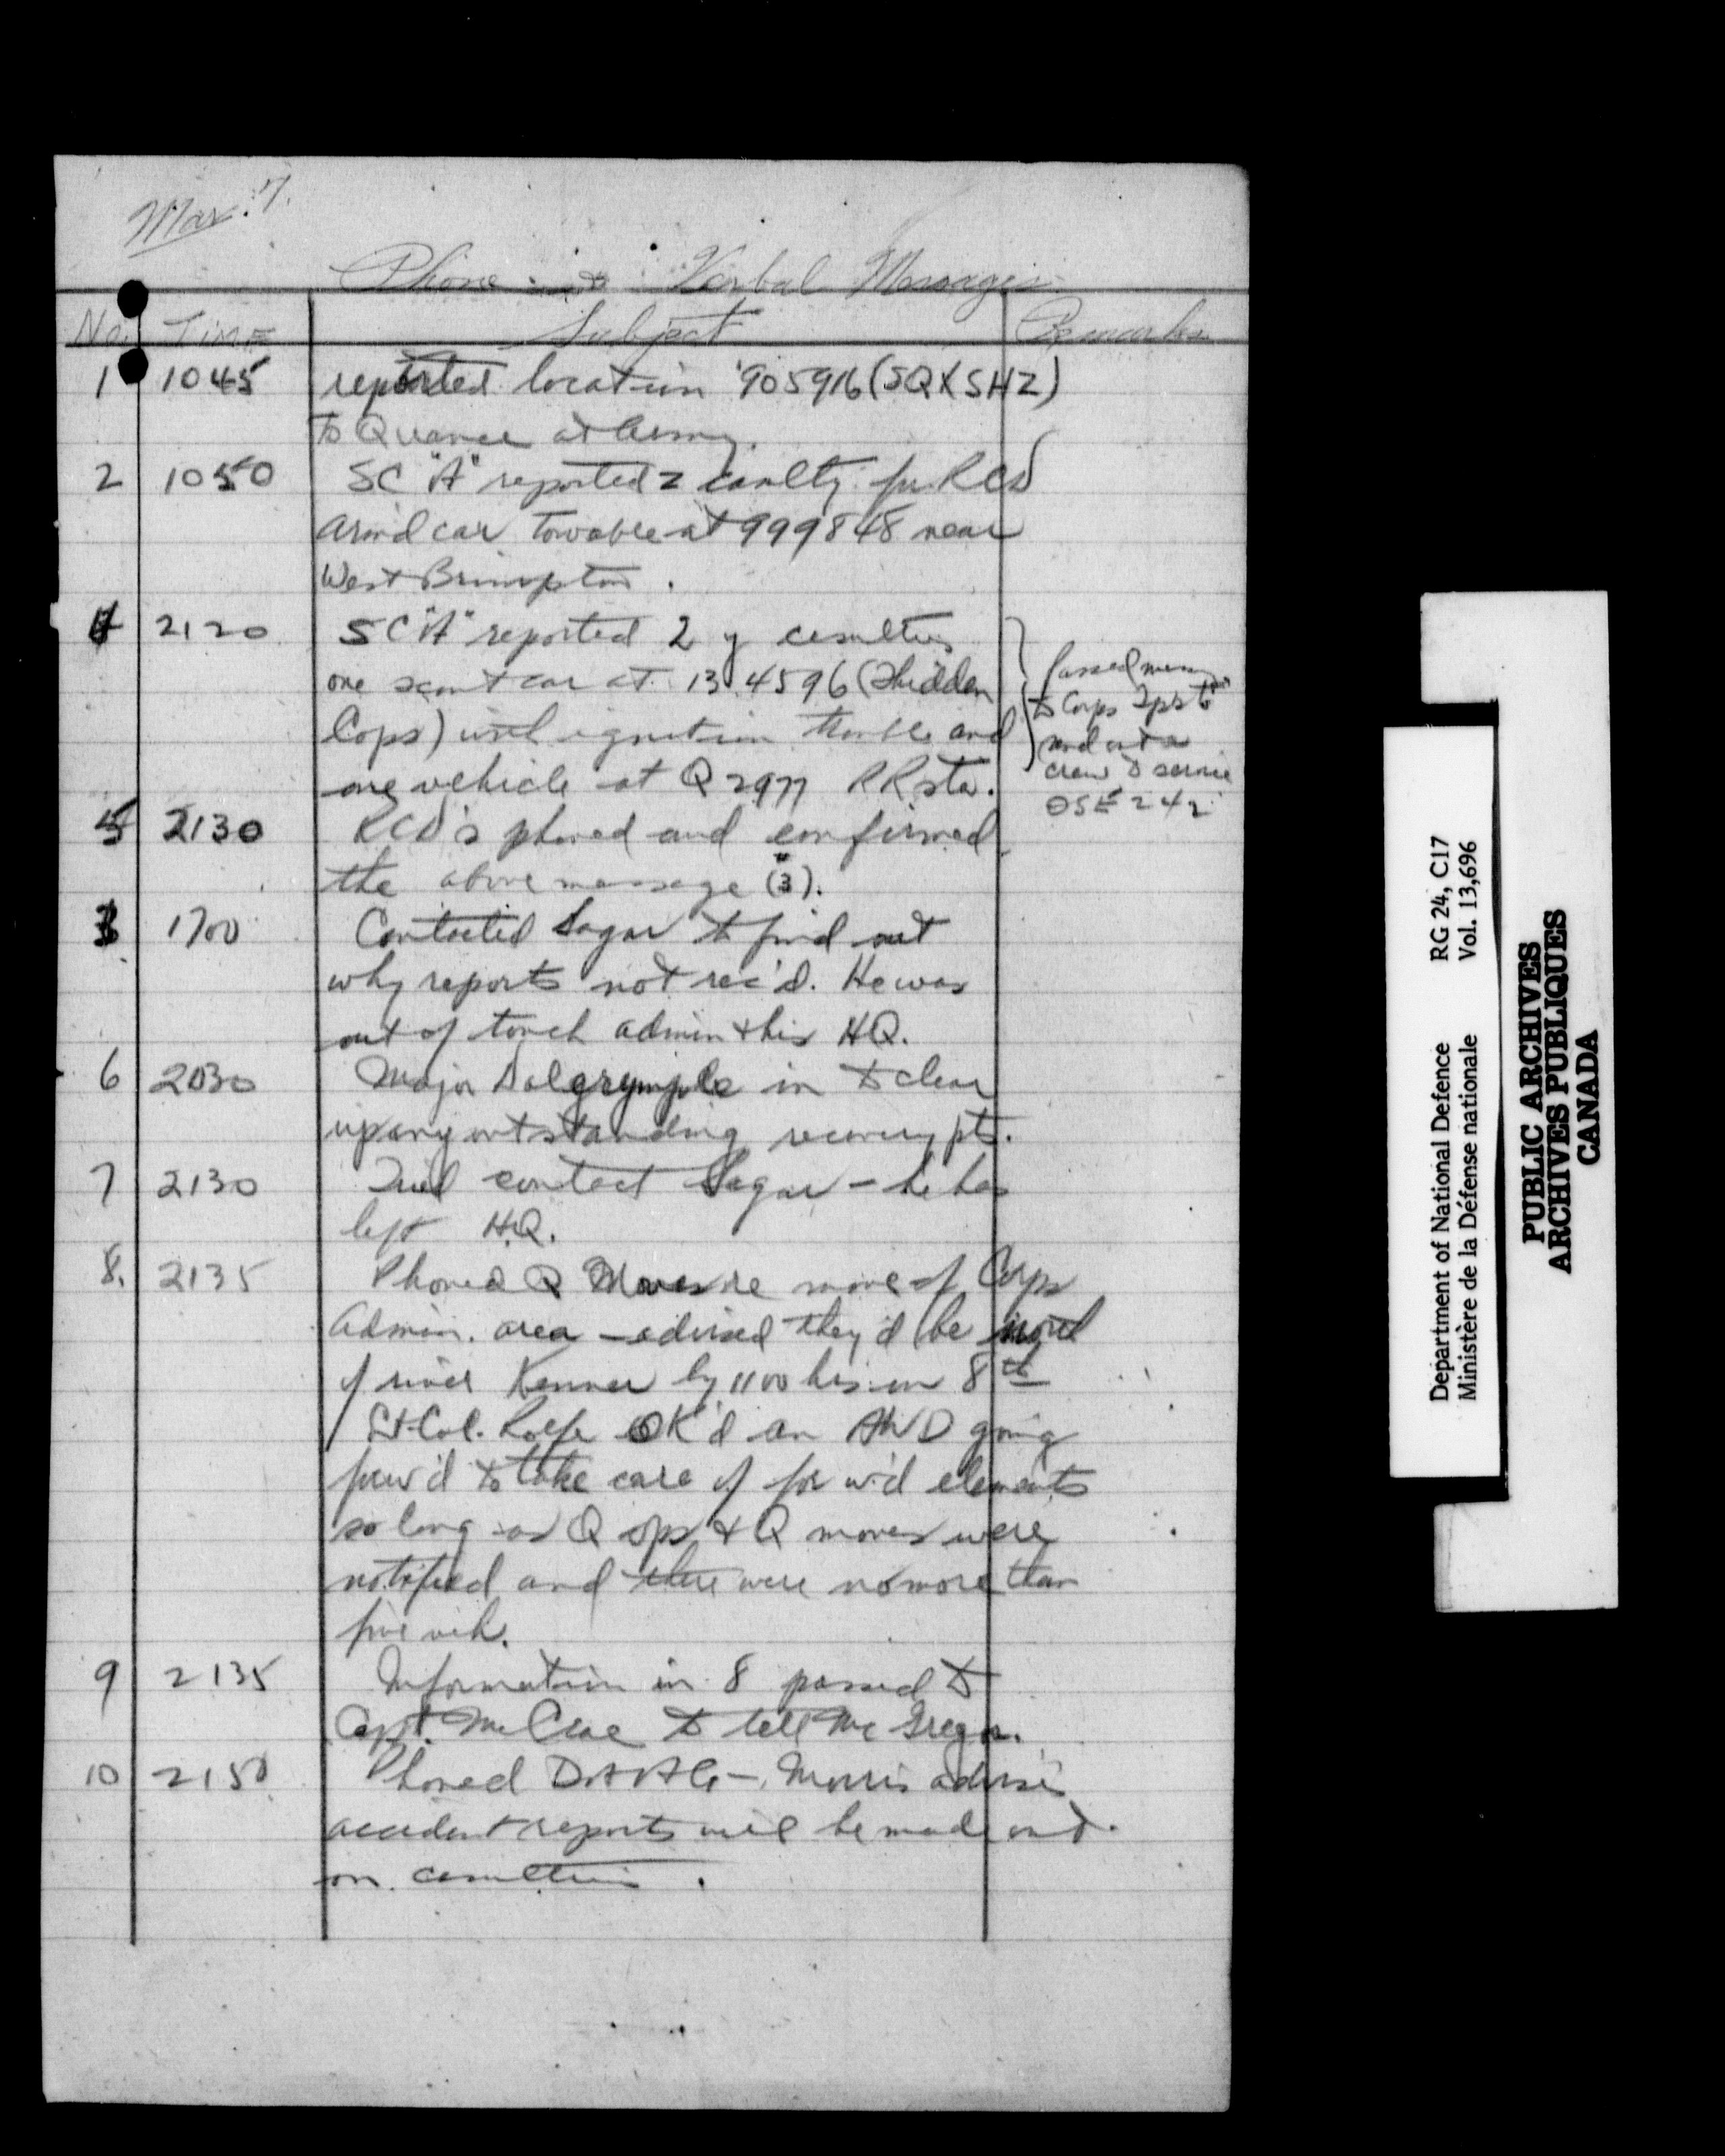 Mar. 7.
Phone Verbal Messages
No. Time Subject Remarks
1 1045 reported location 905916 (SQXSHZ)
to Quance at Army.
2 1050 SC "A" reported z for RCD
armd car towable at 999848 near
West Brimpton.
4 2120 SC "A" reported 2 y casulties
one scout car at 134596 (Shidden
Cops) with ignition trouble and
one vehicle at Q 2977 RR sta.
passed
to Corps Tps to
send out a
crew to service
OSE 242
5 2130 RCD's phoned and confirmed
the above message (3).
3 1700 Contacted Sagar to find out
why reports not rec'd. He was
out of touch admin & his HQ.
6 2030 Major Dalgrymple in to clear
up any outstanding recovery pts.
7 2130 Tried contact Sagar - he has
left H.Q.
8. 2135 Phoned Q Moves re move of Corps
Admin. area - advised they'd be
of river Kenner by 1100 hrs on 8th
Lt-Col. Rolfe OK'd an AWD going
forw'd to take care of forw'd elements
so long as Q ops & Q moves were
notified and there were no more than
five veh.
9 2135 Information in 8 passed to
Capt. McCrae to tell McGregor.
10 2150 Phoned DAAG - Morris advise
accident reports will be made out.
on casulties.
Department of National Defence RG 24, C17
Ministère de la Défense nationale Vol. 13,696
PUBLIC ARCHIVES
ARCHIVES PUBLIQUES
CANADA